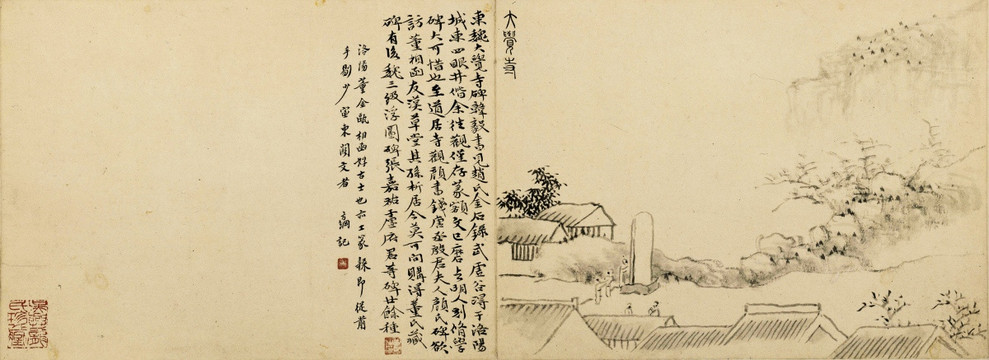 大覺寺
東魏大覺寺碑韓毅書見趙氏金石錄武虛谷得于洛陽
城東四眼井偕余往觀僅存篆額文已磨去明人別脩學
碑大可惜也至道居寺觀顏書錢唐丞殷君夫人顏氏碑欲
訪董相函友漢草堂其孫析居今莫可問購得董氏藏
碑有後魏三級浮圖碑張嘉祐盧府君等碑廿餘種
洛陽董金甌相函好古士也 即從前
手劚少室東闕文者 記